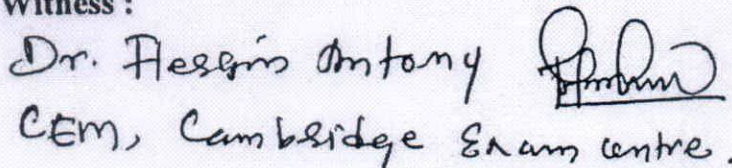 Witness :
Dr. Antony
CEM, Cambridge Exam centre.